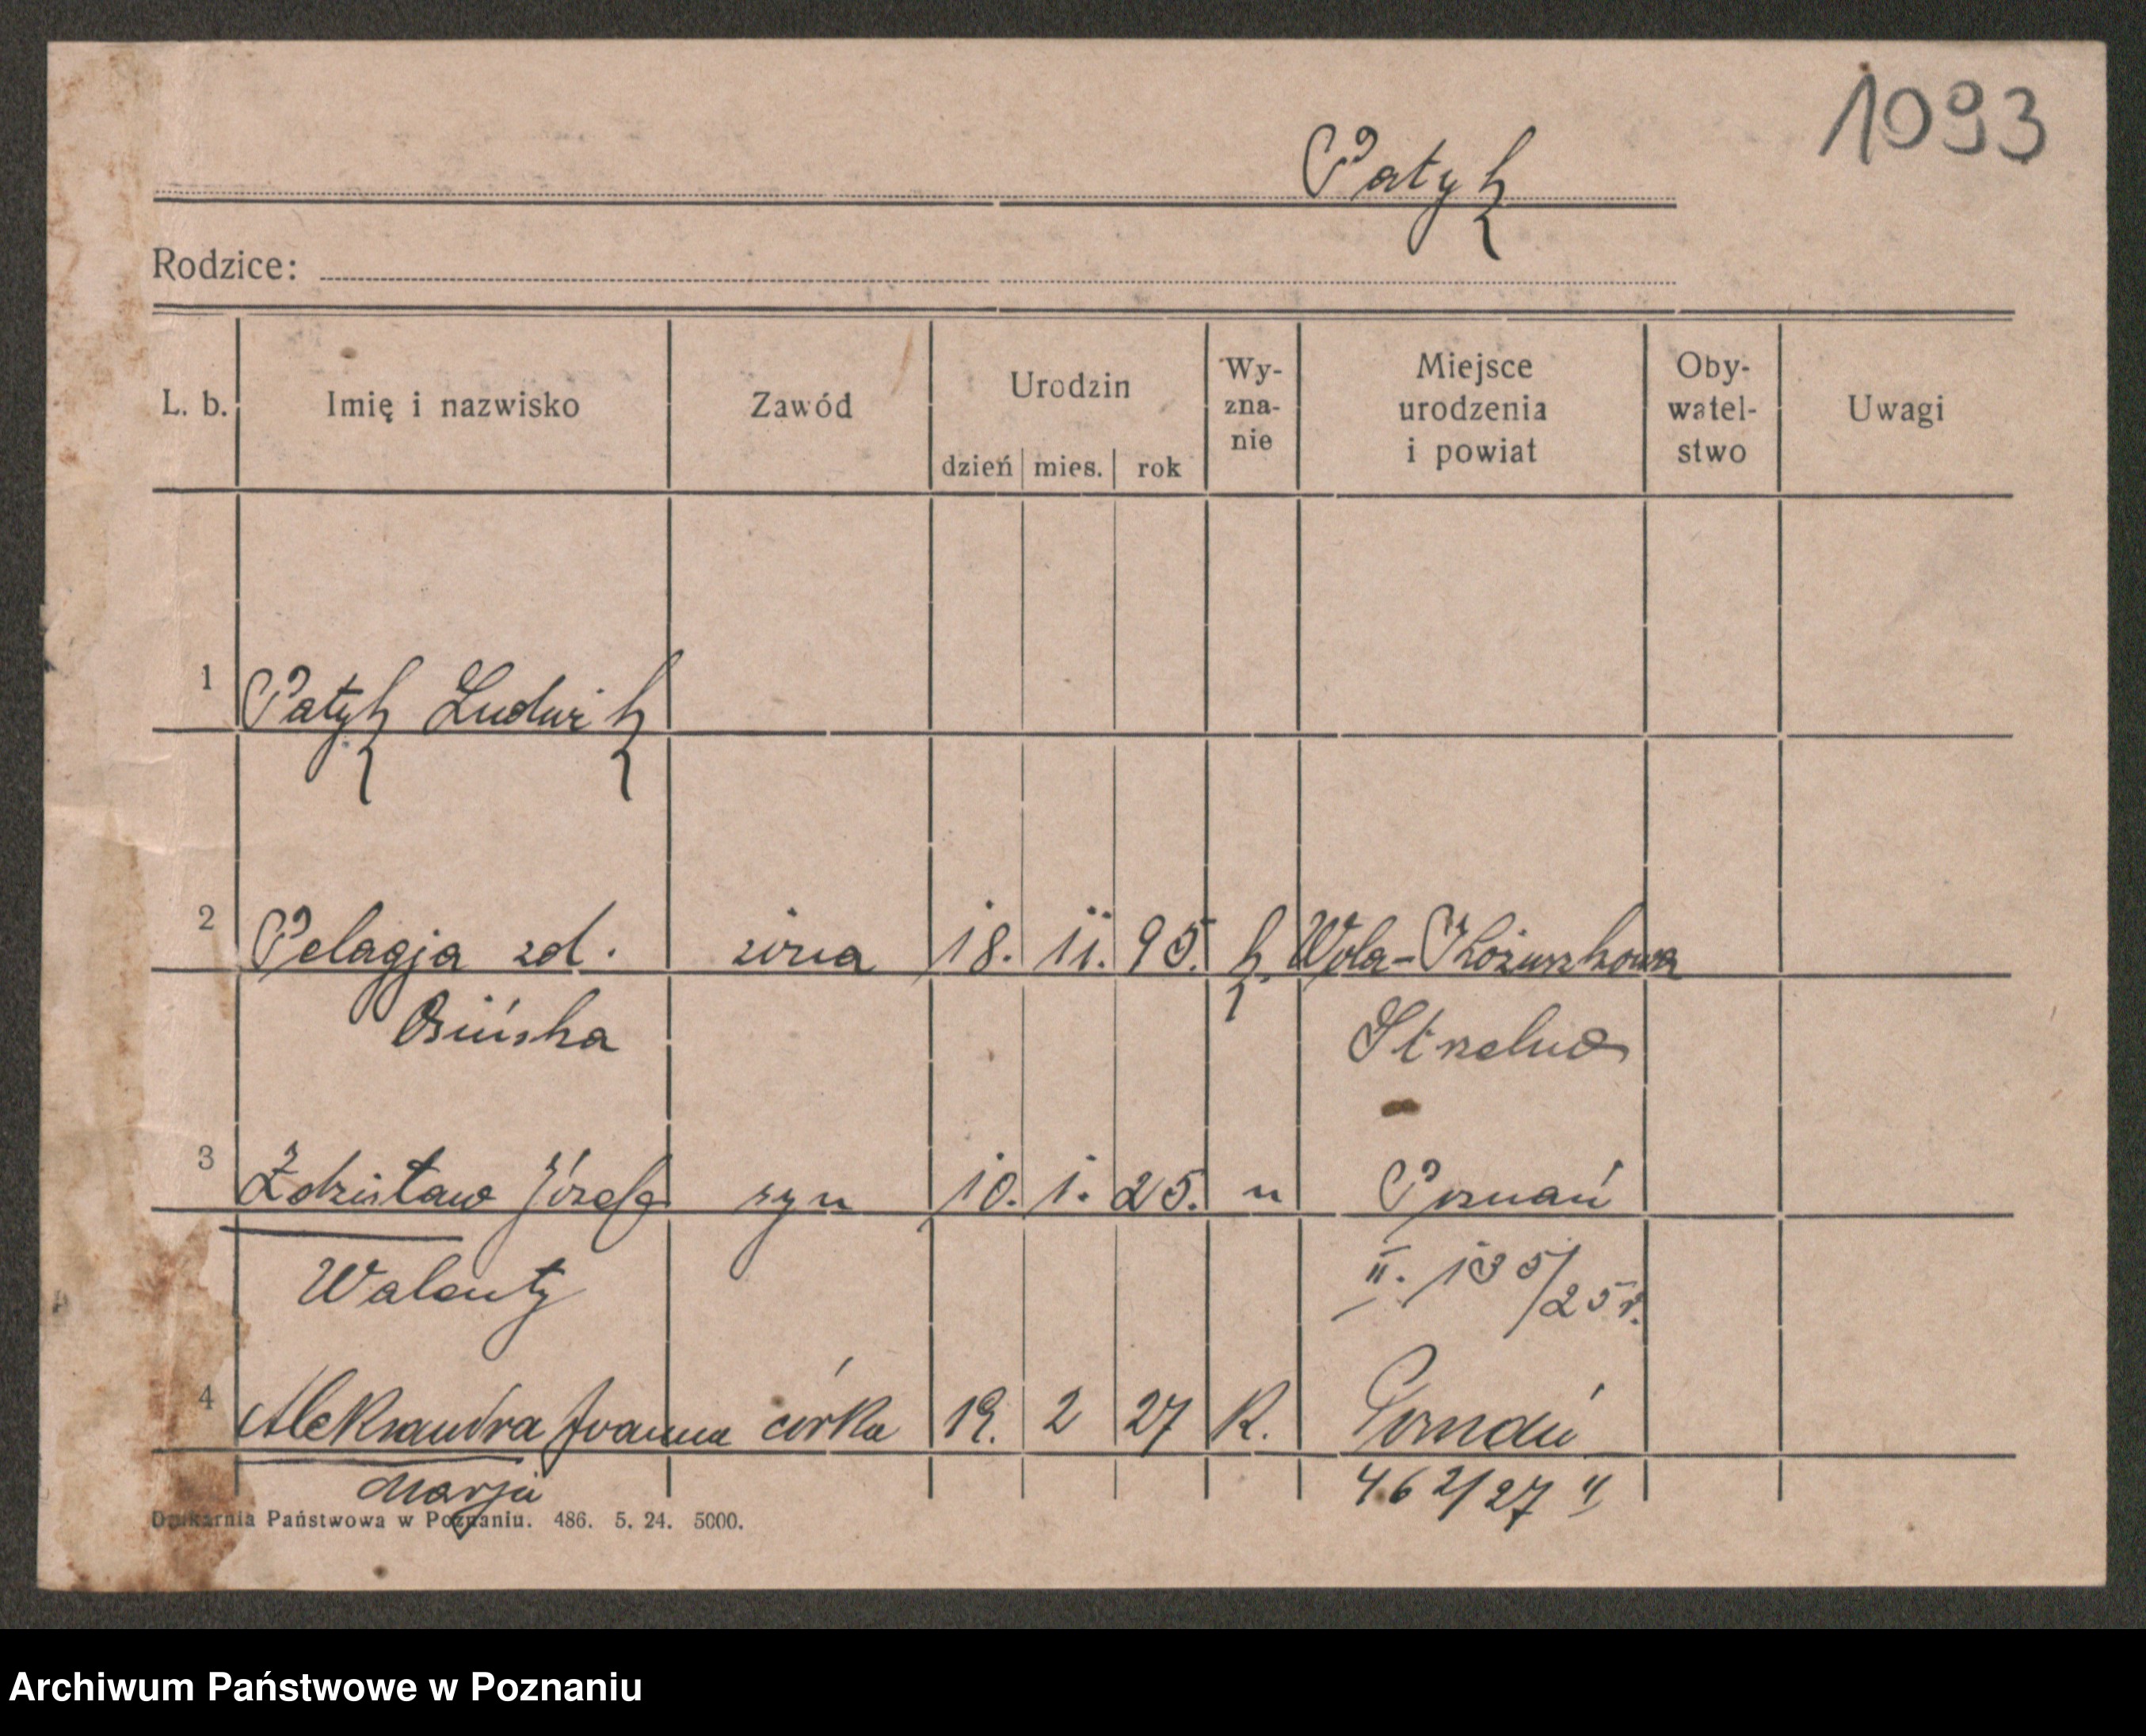 1093
Patyk
Rodzice:
L. b. Imię i nazwisko Zawód Urodzin dzień mies. rok Wy-zna-nie Miejsce urodzenia i powiat Oby-watel-stwo Uwagi
1 Patyk Ludwik
2 Pelagja zd. żona 18. 11. 95. k. Wola-Kożuszkowa
Osińska Strzelno
3 Zdzisław Józef syn 10. 1. 25. " Poznań
Walenty II. 135/25 r.
4 Aleksandra Joanna córka 19. 2 27 K. Poznań
Marja 462/27 II
Drukarnia Państwowa w Poznaniu. 486. 5. 24. 5000.
Archiwum Państwowe w Poznaniu